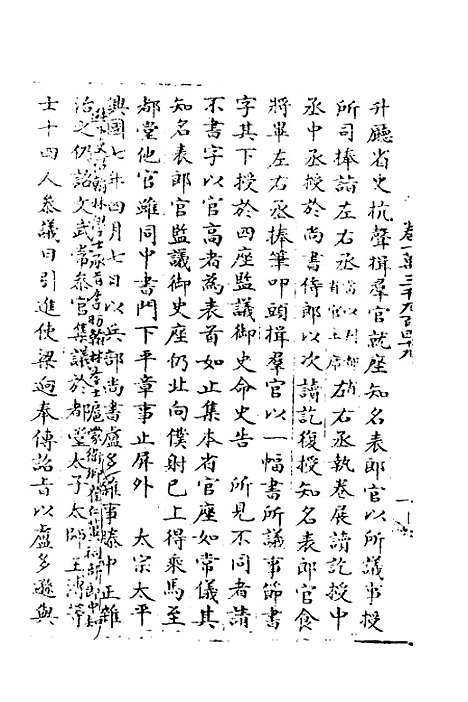 卷一萬三千九百四十九
升廳省史抗聲揖羣官就座知名表郎官以所議事授
所司捧詣左右丞左右丞執卷展讀訖授中
丞中丞授於尚書侍郎以次讀訖復授知名表郎官食
將畢左右丞捧筆叩頭揖羣官以一幅書所議事節書
字其下授於四座監議御史命史告 所見不同者請
不書字以官高者為表首如止集本省官座如常儀其
知名表郎官監議御史座仍北向僕射已上得乘馬至
都堂他官雖同中書門下平章事止屏外 太宗太平
興國七年四月七日以兵部尚書盧多遜事
治之仍詔文武常參官集議於都堂太子太師王溥等
士十四人參議日引進使梁迥奉傳詔旨以盧多遜與